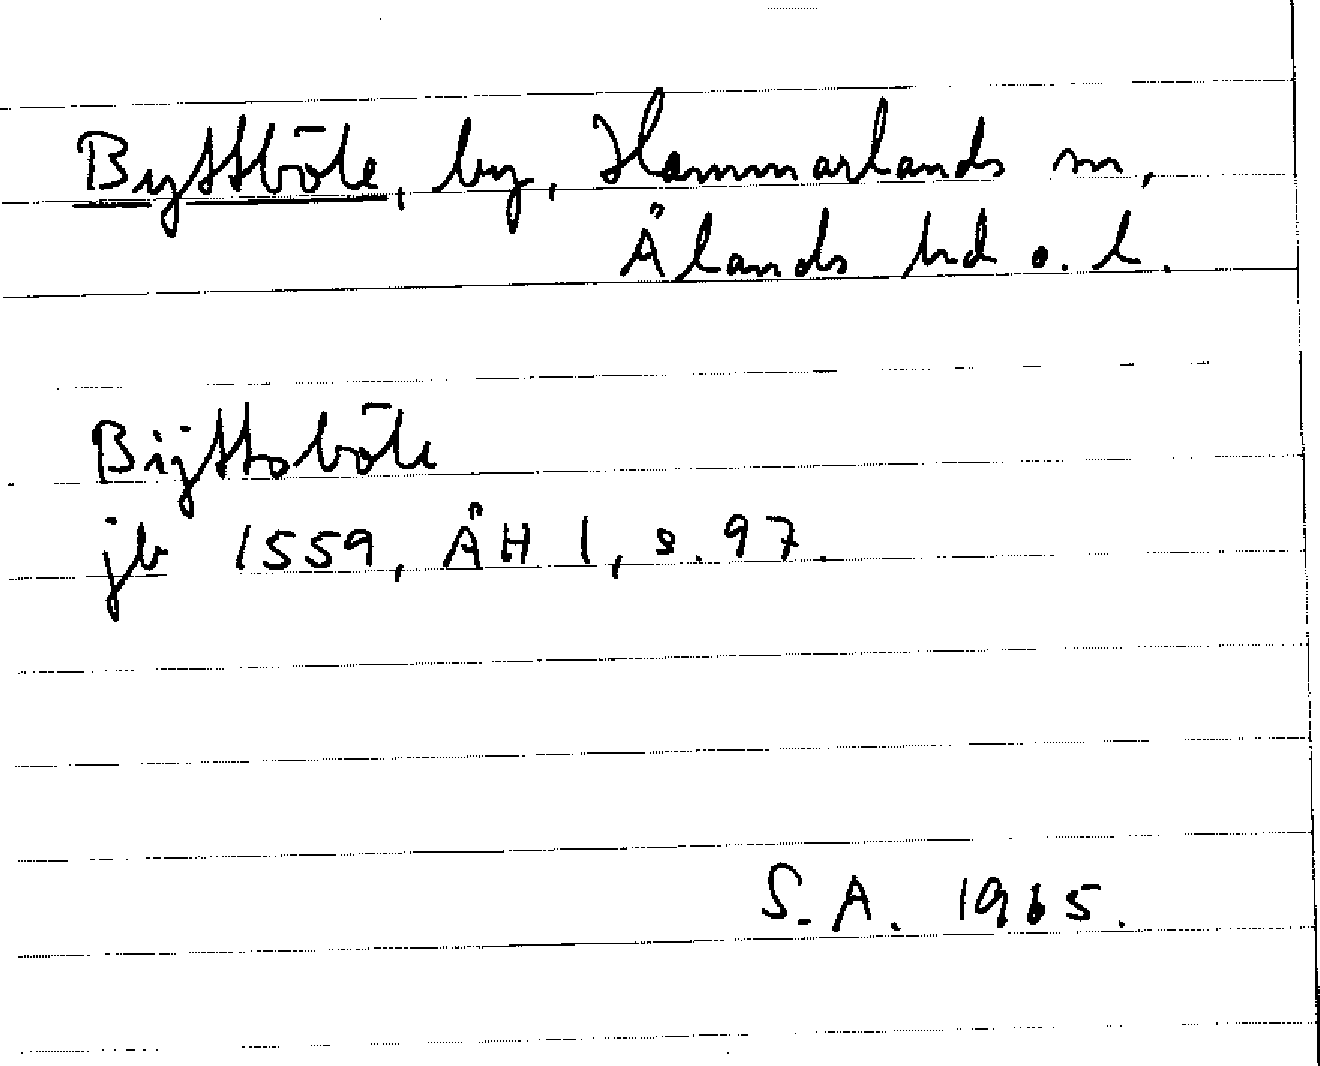 Byttböle, by, Hammarlands sn,
Ålands hd o. l.
Bijttsböle
jb 1559, ÅH 1, s. 97.
S. A. 1965.